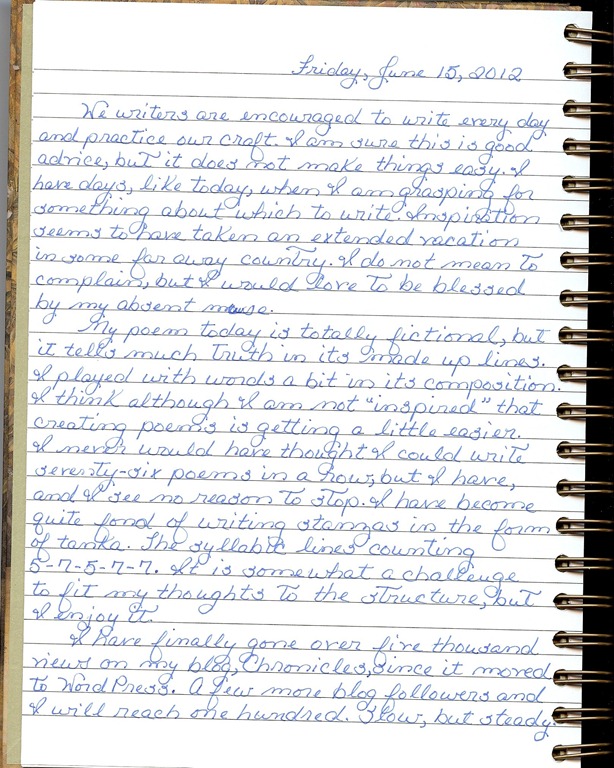 Friday, June 15, 2012
We writers are encouraged to write every day
and practice our craft. I am sure this is good
advice, but it does not make things easy. I
have days, like today, when I am grasping for
something about which to write. Inspiration
seems to have taken an extended vacation
in some far away country. I do not mean to
complain, but I would love to be blessed
by my absent muse.
My poem today is totally fictional, but
it tells much truth in its made up lines.
I played with words a bit in its composition.
I think although I am not "inspired" that
creating poems is getting a little easier.
I never would have thought I could write
seventy-six poems in a row, but I have,
and I see no reason to stop. I have become
quite fond of writing stanzas in the form
of tanka. The syllabic lines counting
5-7-5-7-7. It is somewhat a challenge
to fit my thoughts to the structure, but
I enjoy it.
I have finally gone over five thousand
views on my blog, Chronicles, since it moved
to WordPress. A few more blog followers and
I will reach one hundred. Slow, but steady.